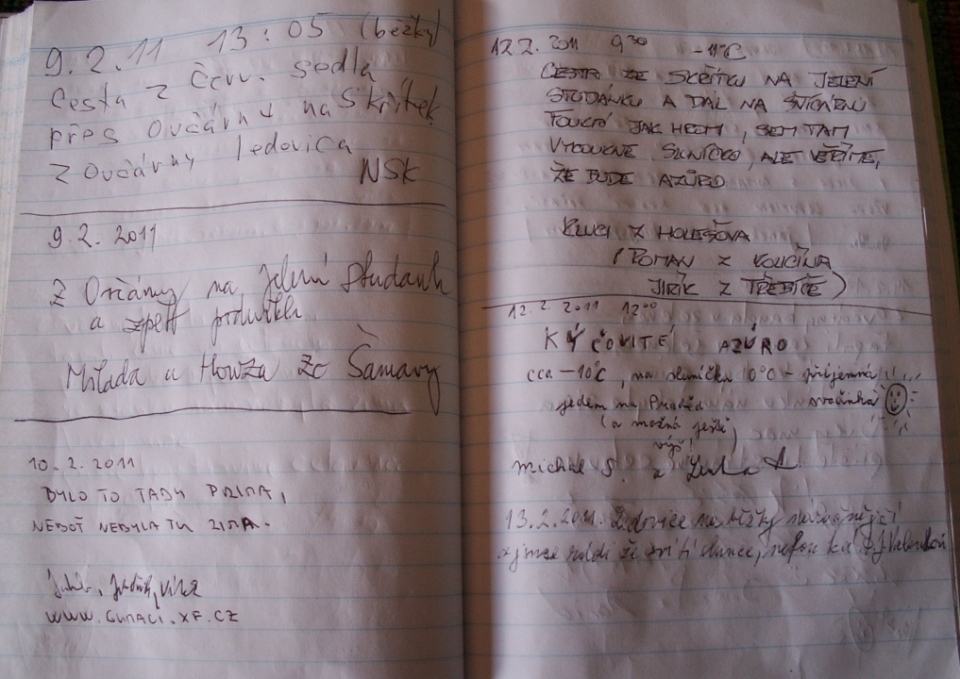 9.2.11 13:05 (běžky)
Cesta z Červ. sedla
přes Ovčárnu na Skřítek
Z Ovčárny ledovica
NSK
9.2. 2011
Z na Jelení Studánku
a zpět
Milada a Honza ze Šumavy
10.2.2011
BYLO TO TADY PRIMA,
NEBOŤ NEBYLA TU ZIMA.
WWW.GUMACI.XF.CZ
12.2. 2011 9³⁰ -11°C
CESTA ZE SKŘÍTKU NA JELENÍ
STUDÁNKU A DÁL NA
FOUKÁ JAK , SEM TAM
VYKOUKNE SLUNÍČKO, ALE VĚŘÍME,
ŽE BUDE AZŮRO
KLUCI Z HOLEŠOVA
(ROMAN Z
JIŘÍK Z TŘEBÍČE)
12.2 2011 12⁰⁰
KÝČOVITÉ AZÚRO
cca -10°C, na sluníčku 0°C - příjemná
jedem na Praděd svačinka
(a možná ještě
výš!)
Michal S. a
13.2.2011. na běžky
a jsme rádi že svítí slunce, nefouká